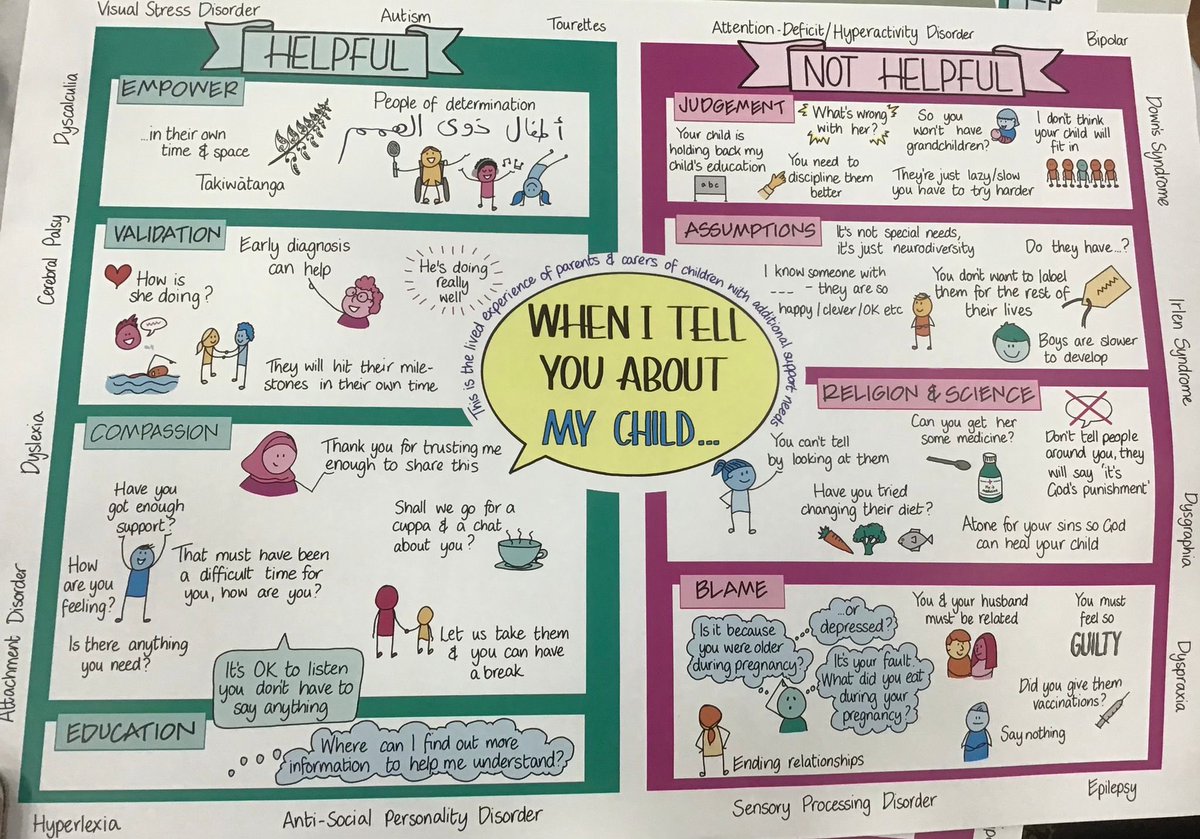 Visual Stress Disorder
Autism
Tourettes
Attention-Deficit/Hyperactivity Disorder
Bipolar
Dyscalculia
Cerebral Palsy
Dyslexia
Attachment Disorder
Hyperlexia
Anti-Social Personality Disorder
Sensory Processing Disorder
Epilepsy
Down's Syndrome
Irlen Syndrome
Dysgraphia
Dyspraxia
HELPFUL
EMPOWER
...in their own
time & space
Takiwātanga
People of determination
أطفال ذوى الهمم
VALIDATION
How is
she doing?
Early diagnosis
can help
He's doing
really
well
They will hit their mile-
stones in their own time
COMPASSION
Thank you for trusting me
enough to share this
Have you
got enough
support?
How
are you
feeling?
That must have been
a difficult time for
you, how are you?
Is there anything
you need?
Shall we go for a
cuppa & a chat
about you?
Let us take them
& you can have
a break
It's OK to listen
you don't have to
say anything
EDUCATION
Where can I find out more
information to help me understand?
This is the lived experience of parents & carers of children with additional support needs
WHEN I TELL
YOU ABOUT
MY CHILD...
NOT HELPFUL
JUDGEMENT
Your child is
holding back my
child's education
abc
What's wrong
with her?
You need to
discipline them
better
So you
won't have
grandchildren?
They're just lazy/slow
you have to try harder
I don't think
your child will
fit in
ASSUMPTIONS
It's not special needs,
it's just neurodiversity
Do they have...?
I know someone with
___ - they are so
happy/clever/OK etc
You don't want to label
them for the rest of
their lives
Boys are slower
to develop
RELIGION & SCIENCE
You can't tell
by looking at them
Can you get her
some medicine?
Don't tell people
around you, they
will say 'it's
God's punishment'
Have you tried
changing their diet?
Atone for your sins so God
can heal your child
BLAME
Is it because
you were older
during pregnancy?
...or
depressed?
It's your fault.
What did you eat
during your
pregnancy?
You & your husband
must be related
You must
feel so
GUILTY
Did you give them
vaccinations?
Say nothing
Ending relationships